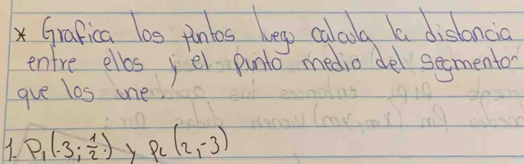 * Grafica los puntos luego calcula la distancia
entre ellos y el punto medio del segmento
que los une.
1. P₁(-3; 1/2) y P₂(2,-3)